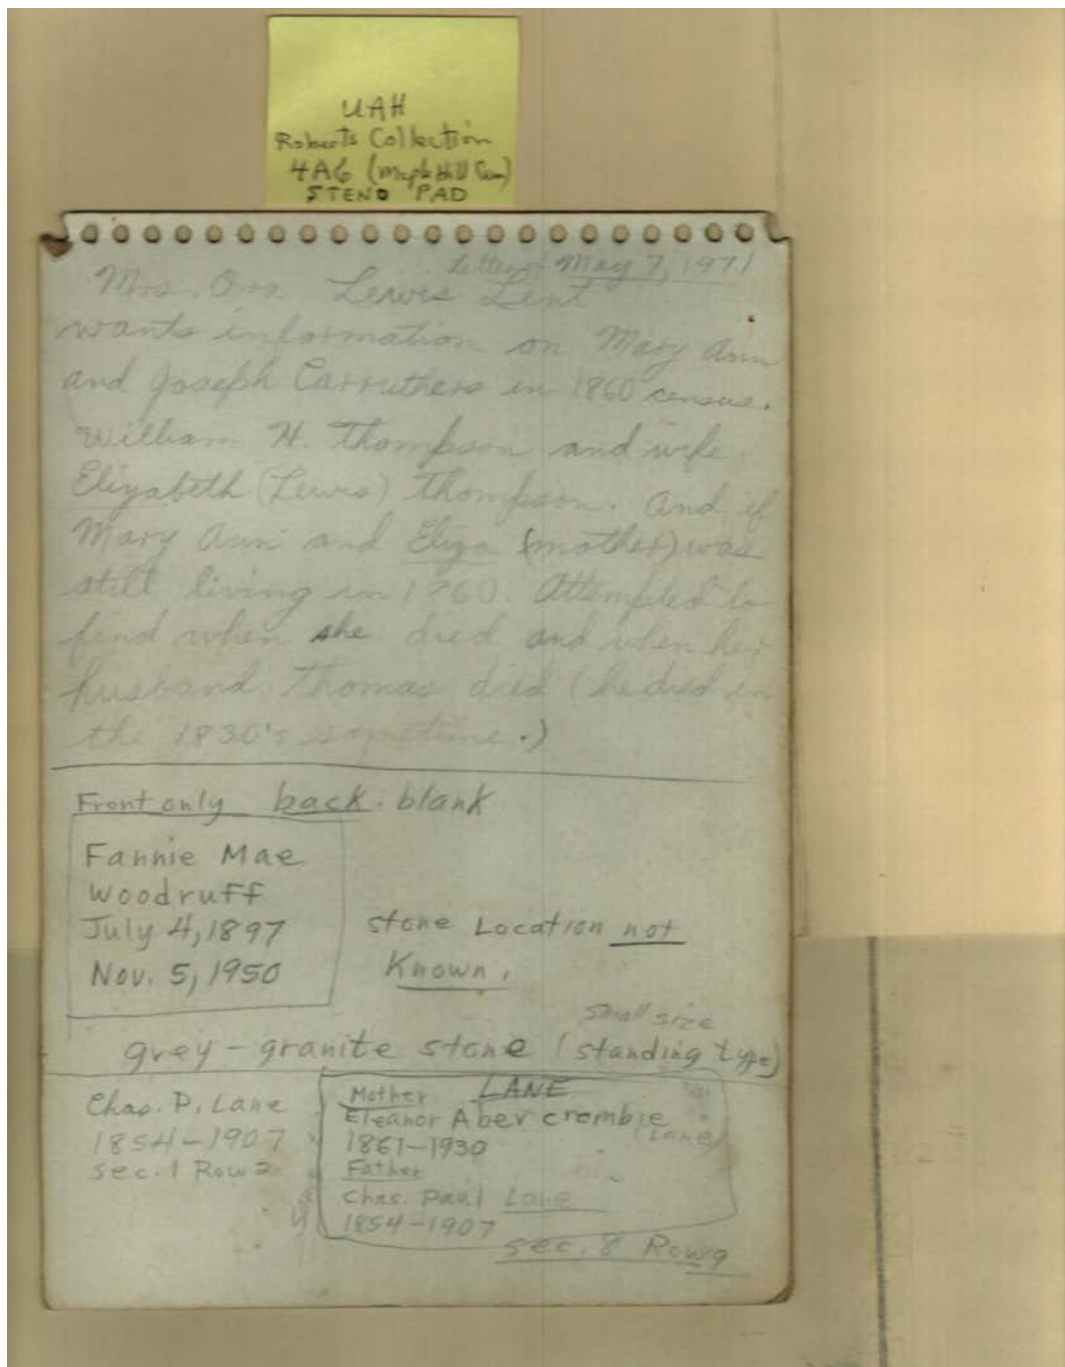 UAH
Roberts Collection
4A6 (Maple Hill Cem)
STENO PAD
Letter of May 7, 1971
Mrs. Ora Lewis Lent
wants information on Mary Ann
and Joseph Carruthers in 1860 census.
William H. Thompson and wife
Elizabeth (Lewis) Thompson. And if
Mary Ann and Eliza (mother) was
still living in 1860. Attempted to
find when she died and when her
husband Thomas died (he died in
the 1830's sometime.)
Front only back. blank
Fannie Mae
Woodruff
July 4, 1897
Nov. 5, 1950
stone Location not
Known.
small size
grey-granite stone (standing type)
Chas. P. Lane
1854-1907
sec. 1 Row 2
Mother LANE
Eleanor Abercrombie
(Lane)
1861-1930
Father
Chas. Paul Lane
1854-1907
sec. 8 Row 9